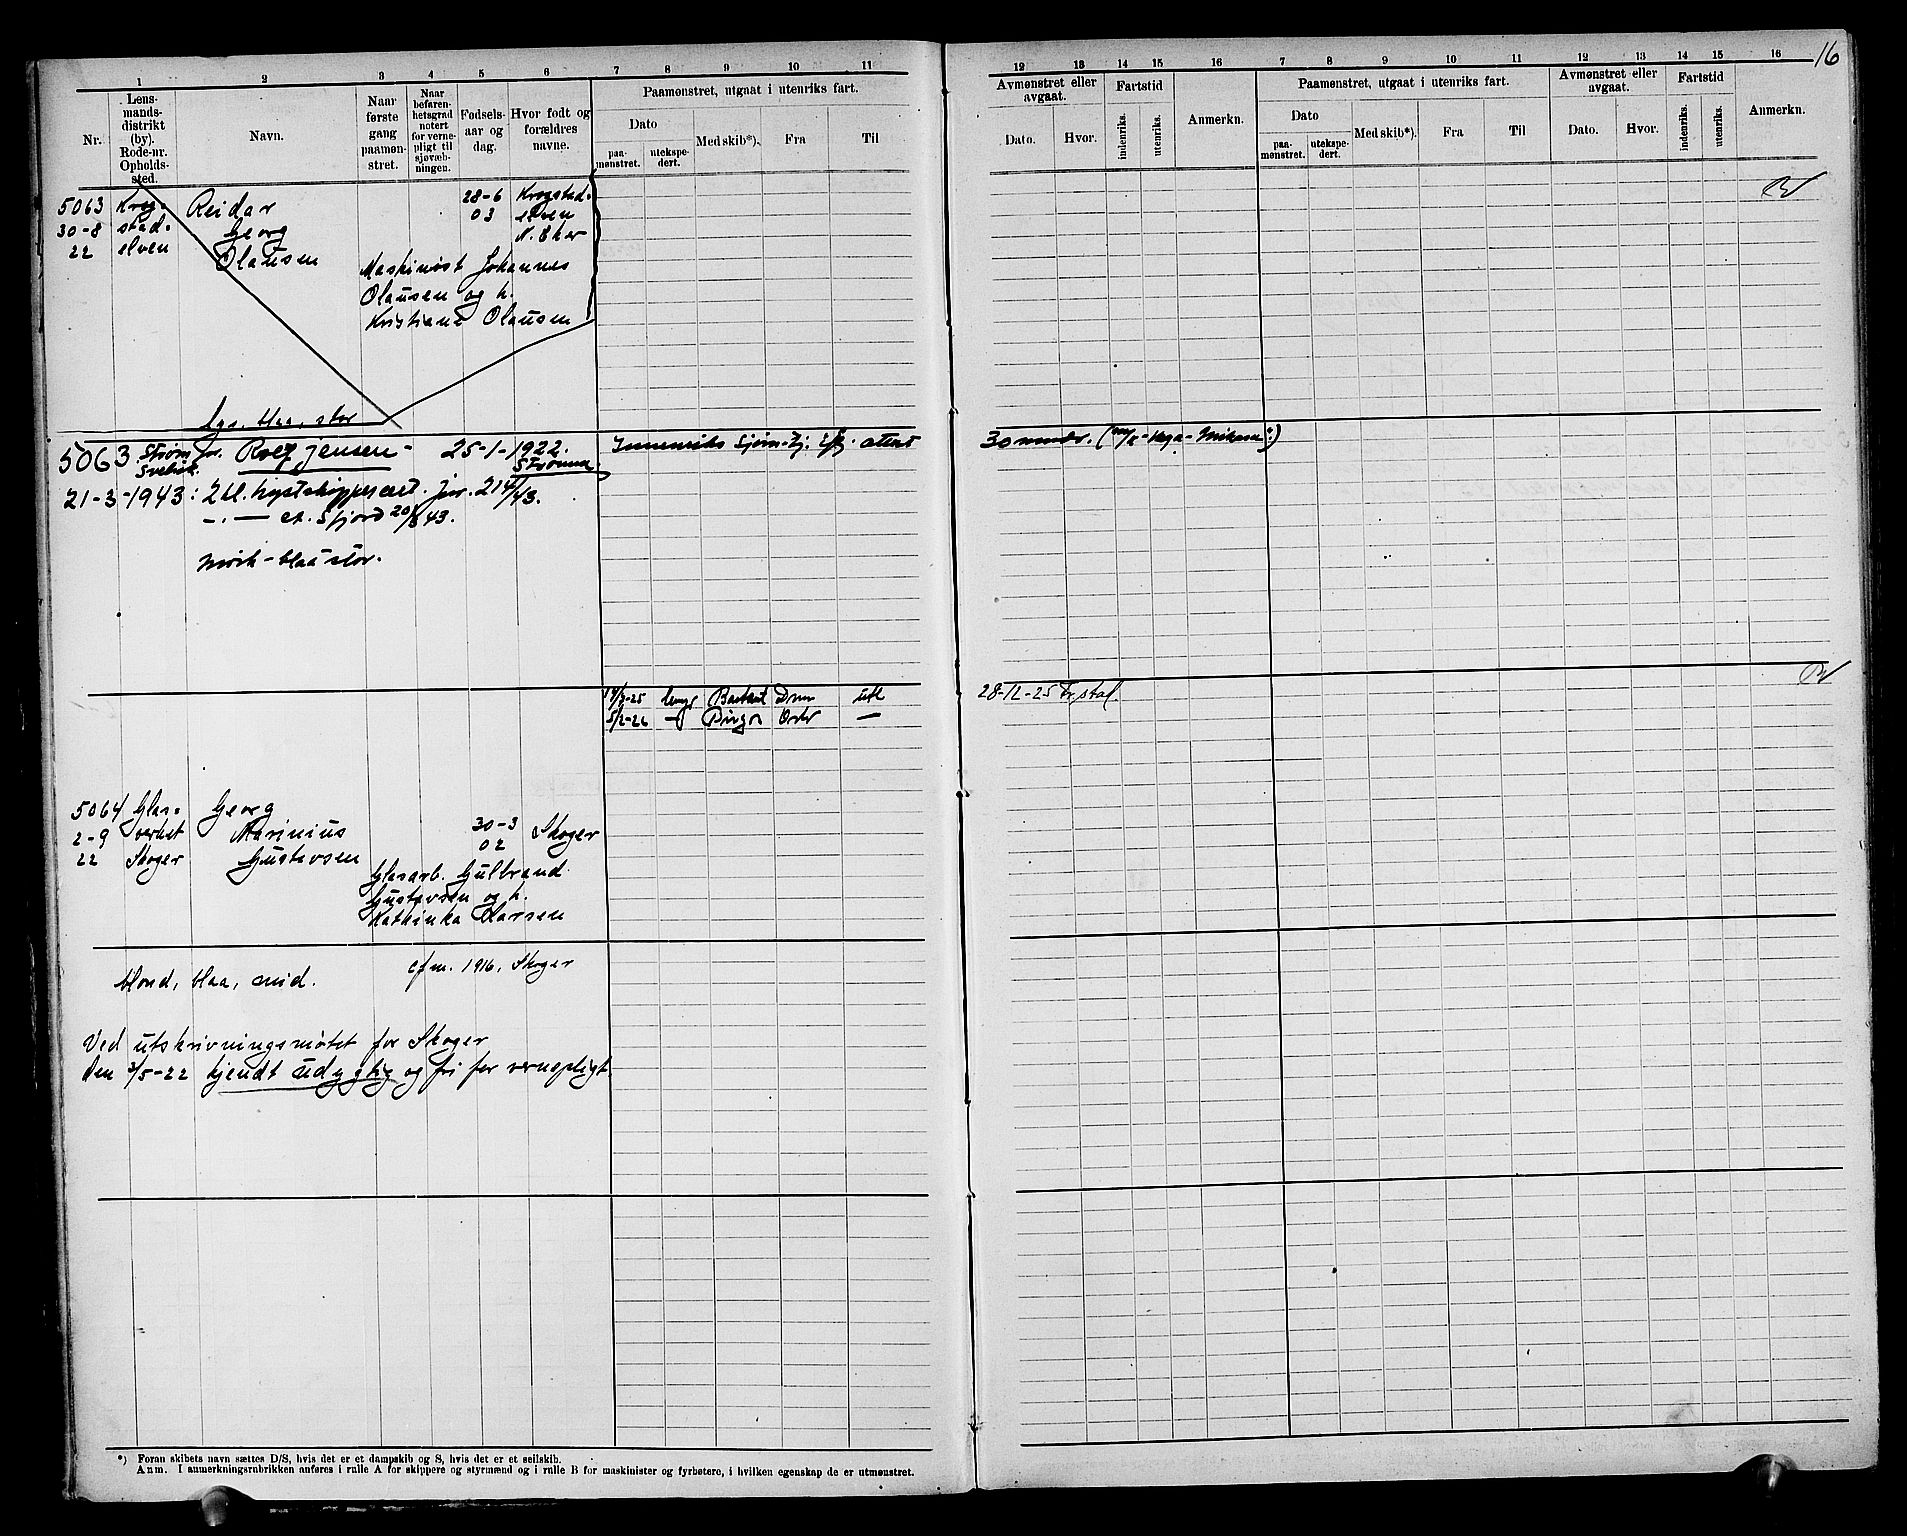 16
1 2 3 4 5 6 7 8 9 10 11
12 13 14 15 16 7 8 9 10 11 12 13 14 15 16
Nr.
Lens-
mands-
distrikt
(by).
Rode-nr.
Opholds-
sted.
Navn.
Naar
første
gang
paamøn-
stret.
Naar
beføren-
hetsgrad
notert
for verne-
pligt til
sjøvæb-
ningen.
Fødsels-
aar og
dag.
Hvor født og
forældres
navne.
Paamønstret, utgaat i utenriks fart.
Dato
paa-
mønstret.
utekspe-
dert.
Med skib*).
Fra
Til
Avmønstret eller
avgaat.
Dato.
Hvor.
Fartstid
indenriks.
utenriks.
Anmerkn.
Paamønstret, utgaat i utenriks fart.
Dato
paa-
mønstret.
utekspe-
dert.
Med skib*).
Fra
Til
Avmønstret eller
avgaat.
Dato.
Hvor.
Fartstid
indenriks.
utenriks.
Anmerkn.
5063 Krog- Reidar 28-6 Krogstad-
30-8 stad- Georg 03 elven
22 elven Olausen N. Eker
Maskinist Johannes
Olausen og h.
Kristiane Olausen
lys, blaa, stor
5063 Strøm Rolf Jensen - 25-1-1922.
Svelvik. Strømm.
Innenriks attest
30 mndr.
21-3-1943: jnr. 214/43.
43.
Mørk - blaa stor.
28-12-25
5/2-26 Oslo —
5064 Glas- Georg
2-9 verket Marinius 30-3 Skoger
22 Skoger Gustavsen 02
Glasarb. Gulbrand
Gustavsen og h.
Kathinka Larsen
blond, blaa, mid. cfm. 1916, Skoger
Ved utskrivningsmøtet for Skoger
den 3/5-22 kjendt udygtig og fri for vernepligt.
*) Foran skibets navn sættes D/S, hvis det er et dampskib og S, hvis det er et seilskib.
Anm. I anmerkningsrubrikken anføres i rulle A for skippere og styrmænd og i rulle B for maskinister og fyrbøtere, i hvilken egenskap de er utmønstret.